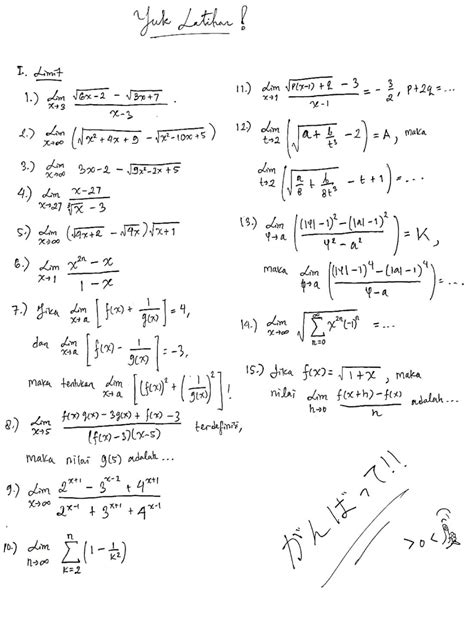 Yuk Latihan!
I. Limit
1.) Lim x→3 (√(6x-2) - √(3x+7)) / (x-3).
2.) Lim x→∞ (√(x²+4x+9) - √(x²-10x+5))
3.) Lim x→∞ 3x-2 - √(9x²-2x+5)
4.) Lim x→27 (x-27) / (∛x - 3)
5.) Lim x→∞ (√(4x+2) - √(4x)) √(x+1)
6.) Lim x→1 (x²ⁿ - x) / (1-x)
7.) Jika Lim x→a [f(x) + 1/g(x)] = 4,
dan Lim x→a [f(x) - 1/g(x)] = -3,
maka tentukan Lim x→a [(f(x))² + (1/g(x))²]!
8.) Lim x→5 (f(x)g(x) - 3g(x) + f(x) - 3) / ((f(x)-3)(x-5)) terdefinisi,
maka nilai g(5) adalah...
9.) Lim x→∞ (2^(x+1) - 3^(x-2) + 4^(x+1)) / (2^(x-1) + 3^(x+1) + 4^(x-1))
10.) Lim n→∞ Σ k=2 n (1 - 1/k²)
11.) Lim x→1 (√(P(x-1)+q) - 3) / (x-1) = -3/2, P+2q = ...
12.) Lim t→2 (√(a + b/t³) - 2) = A, maka
Lim t→2 (√(a/8 + b/8t³) - t + 1) = ...
13.) Lim φ→a ((|φ|-1)² - (|a|-1)²) / (φ²-a²) = K,
maka Lim φ→a ((|φ|-1)⁴ - (|a|-1)⁴) / (φ-a) = ...
14.) Lim x→∞ √(Σ n=0 ∞ x²ⁿ(-1)ⁿ) = ...
15.) Jika f(x) = √(1+x), maka
nilai Lim h→0 (f(x+h) - f(x)) / h adalah...
がんばって!!
>o<